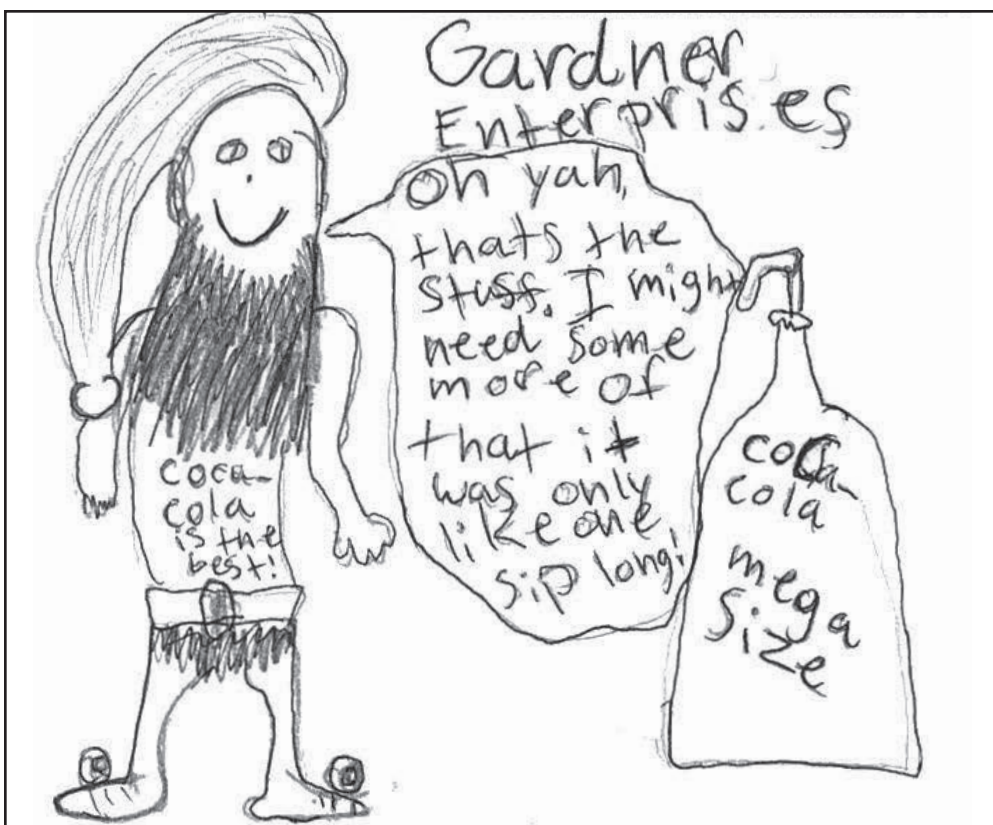 Gardner
Enterprises
oh yah,
thats the
stuff. I might
need some
more of
that it
was only
like one
sip long!
coca-
cola
is the
best!
coca-
cola
mega
size